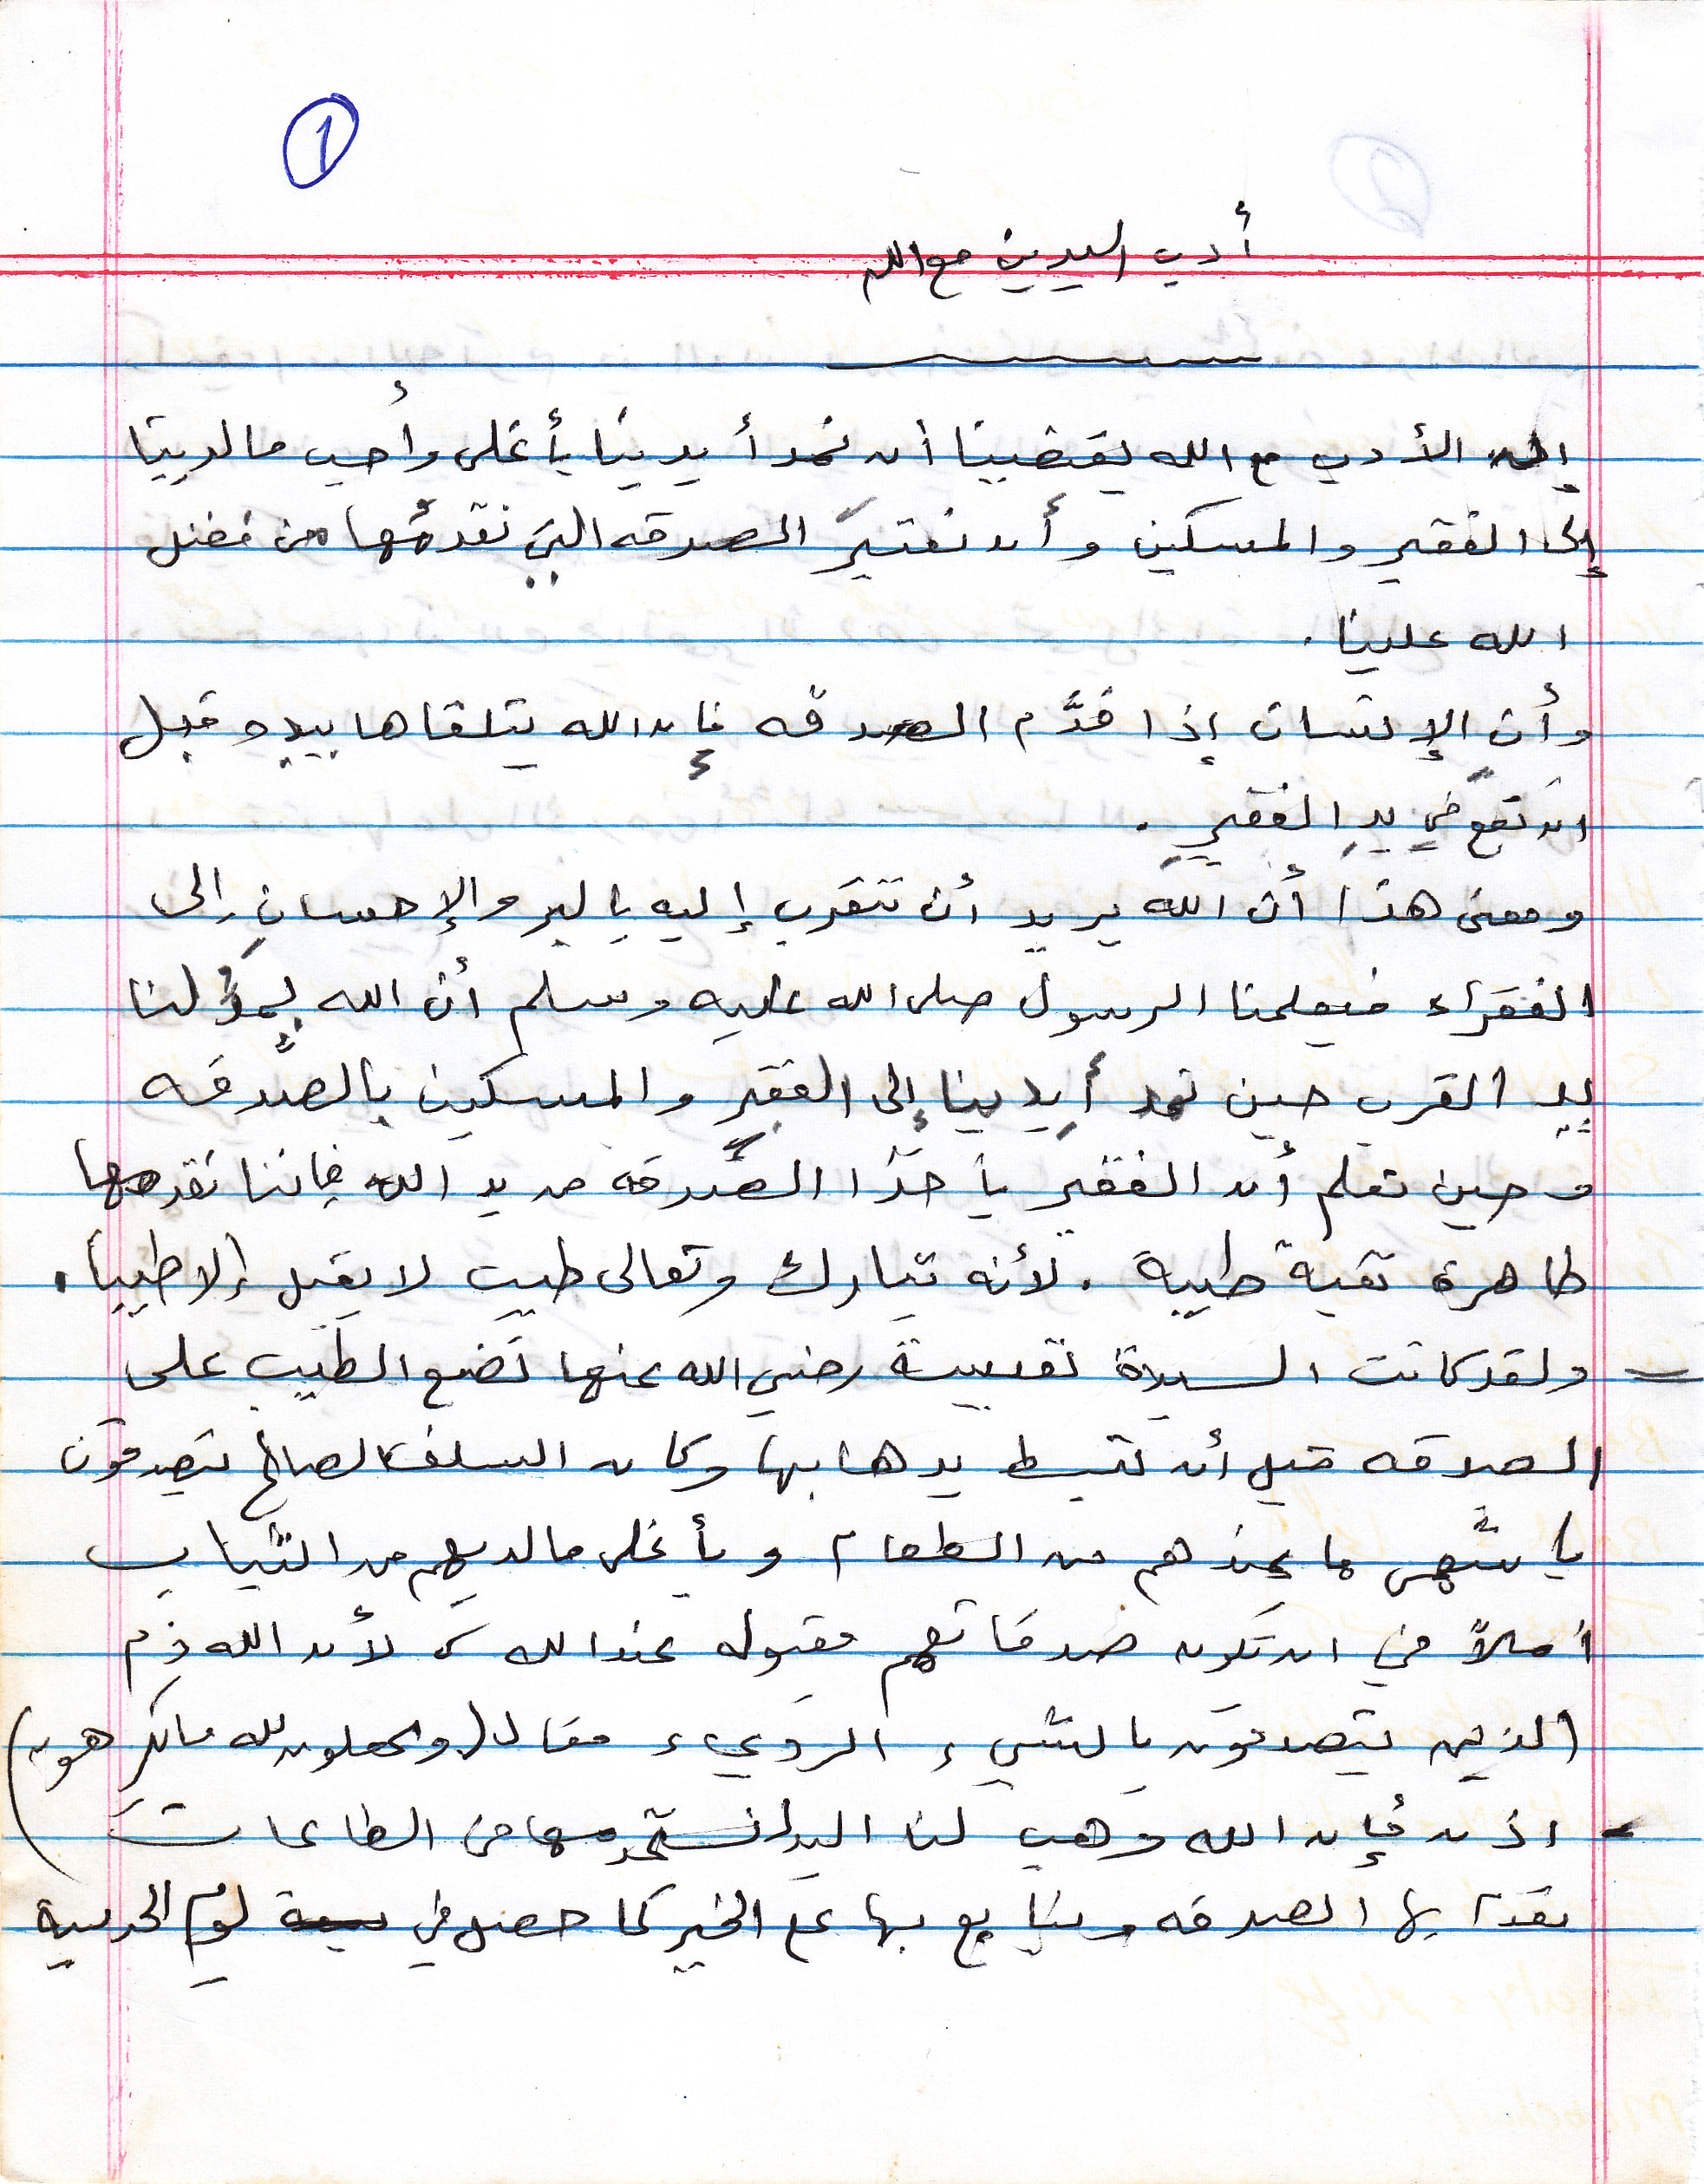 1
أدب اليدين مع الله
إن الأدب مع الله يقتضينا أن نمد أيدينا بأغلى وأحب ما لدينا
إلى الفقير والمسكين وأن نعتبر الصدقه التي نقدمُها من فضل
الله علينا .
وأن الإنسان إذا قدَّم الصدقه فإن الله يتلقاها بيده قبل
ان تقعَ في يدِ الفقيرِ .
ومعنى هذا أن الله يريد أن نتقرب إليه بالبر والإحسانِ إلى
الفقراء فيعلمنا الرسول صلى الله عليه وسلم أن الله يمدُ لنا
يد القرب حين نمد أيدينا إلى الفقيرِ والمسكين بالصَّدقه
وحين نعلم أن الفقير يأخذا الصَّدقه من يد الله فإننا نقدمها
طاهرة نقية طيبة . لأنه تبارك وتعالى طيب لا يقبل إلا طيبا .
- ولقد كانت السيدة نفيسة رضي الله عنها تضع الطيب على
الصدقه قبل أن تبسط يدها بها وكان السلف الصالح يتصدقون
باشهى ما عندهم من الطعام وبأغلى ما لديهم من الثياب
أملاً في ان تكون صدقاتهم مقبوله عند الله لأن الله ذم
الذين يتصدقون بالشيء الرديء فقال (ويجعلون لله ما يكرهون)
- اذن فإن الله وهب لنا اليد لنستخدمها في الطاعات
نقدم بها الصدقه ونبايع بها على الخير كما حصل في يوم الحديبية